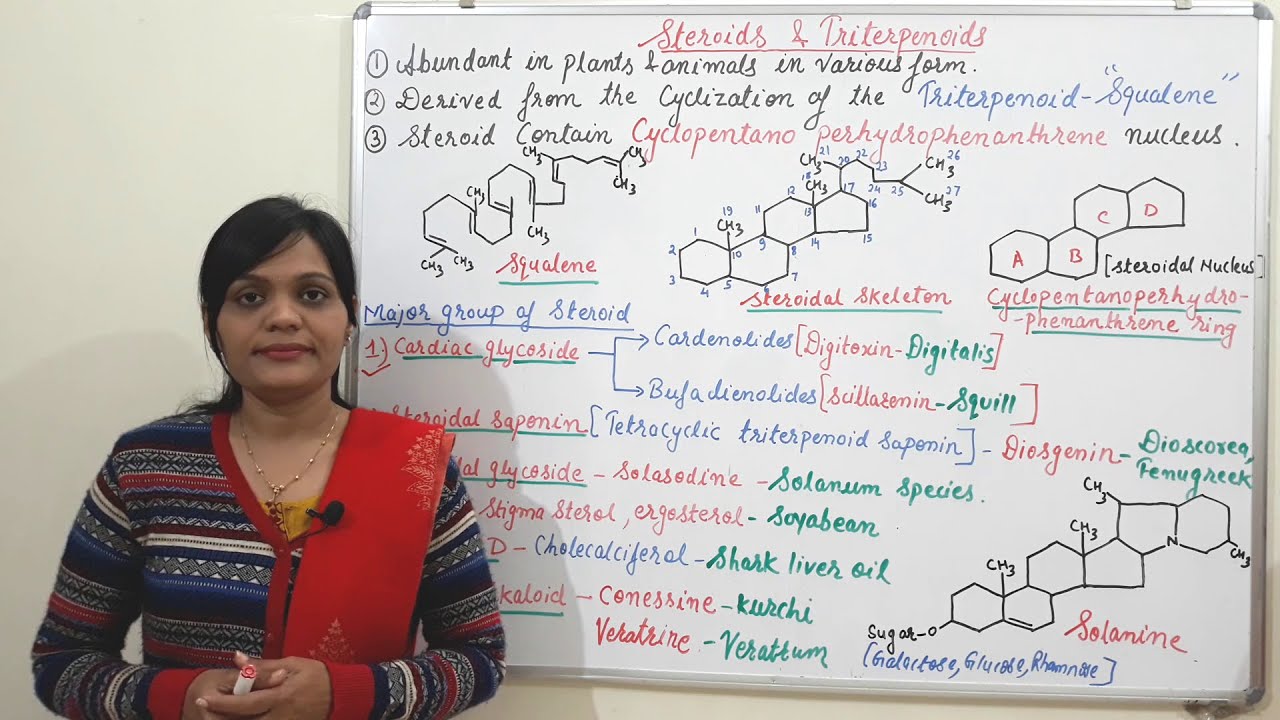 Steroids & Triterpenoids
① Abundant in plants & animals in various form.
② Derived from the Cyclization of the Triterpenoid-"Squalene"
③ Steroid Contain Cyclopentano perhydrophenanthrene nucleus.
CH₃ CH₃
CH₃
CH₃
CH₃
CH₃ CH₃
Squalene
21 CH₃ 20 22 23 24 25 CH₃ 26
CH₃ 27
18 CH₃ 17 16 15 14 13 12 11
19 CH₃ 10 9 8 7 6 5 4 3 2 1
Steroidal Skeleton
A B C D
[Steroidal Nucleus]
Cyclopentanoperhydro-
-phenanthrene ring
Major group of Steroid
1.) Cardiac glycoside
Cardenolides [Digitoxin-Digitalis]
Bufadienolides [Scillarenin-Squill]
Steroidal Saponin [Tetracyclic triterpenoid Saponin] - Diosgenin - Dioscorea,
Fenugreek
dal glycoside - Solasodine - Solanum Species.
Stigma Sterol, ergosterol - Soyabean
D - Cholecalciferol - Shark liver oil
kaloid - Conessine - Kurchi
Veratrine - Verattum
CH₃
CH₃
CH₃
N
CH₃
Sugar-O
Solanine
[Galactose, Glucose, Rhamnose]